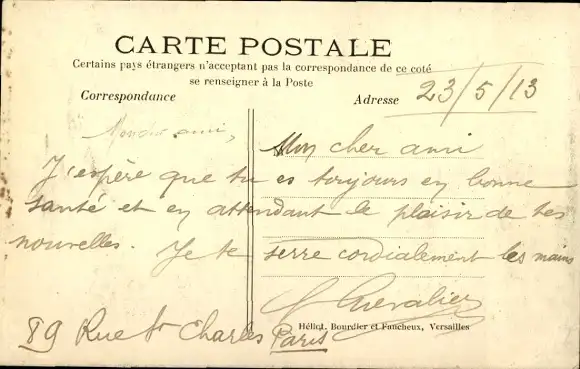 CARTE POSTALE
Certains pays étrangers n'acceptant pas la correspondance de ce coté
se renseigner à la Poste
Correspondance
Adresse
23/5/13
Mon cher ami
J'espère que tu es toujours en bonne
santé et en attendant le plaisir de tes
nouvelles. Je te serre cordialement les mains
Chevalier
89 Rue St Charles Paris
Héliot, Bourdier et Faucheux, Versailles